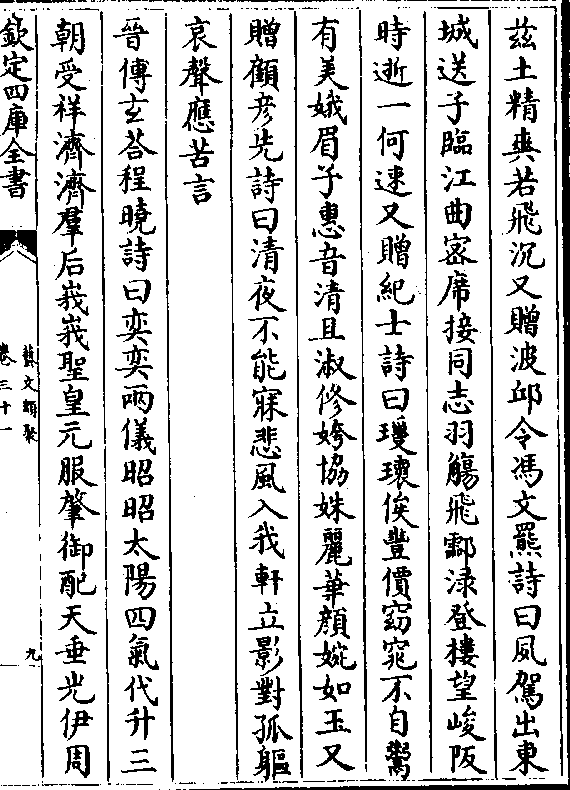 茲土精爽若飛沉又贈波邱令馮文羆詩曰夙駕出東
城送子臨江曲密席接同志羽觴飛酃淥登樓望峻阪
時逝一何速又贈紀士詩曰瓊瓌俟豐價窈窕不自鬻
有美娥眉子惠音清且淑修姱協姝麗華顔婉如玉又
贈顧彦先詩曰清夜不能寐悲風入我軒立影對孤軀
哀聲應苦言
晉傅玄荅程曉詩曰奕奕兩儀昭昭太陽四氣代升三
朝受祥濟濟羣后峩峩聖皇元服肇御配天垂光伊周
欽定四庫全書
藝文類聚
卷三十一
九